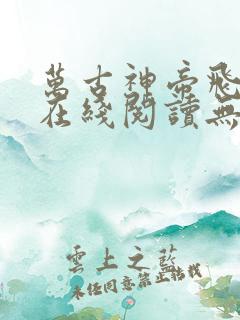 萬古神帝飛
在綫閱讀無
雲上之藍
未经同意禁止转载